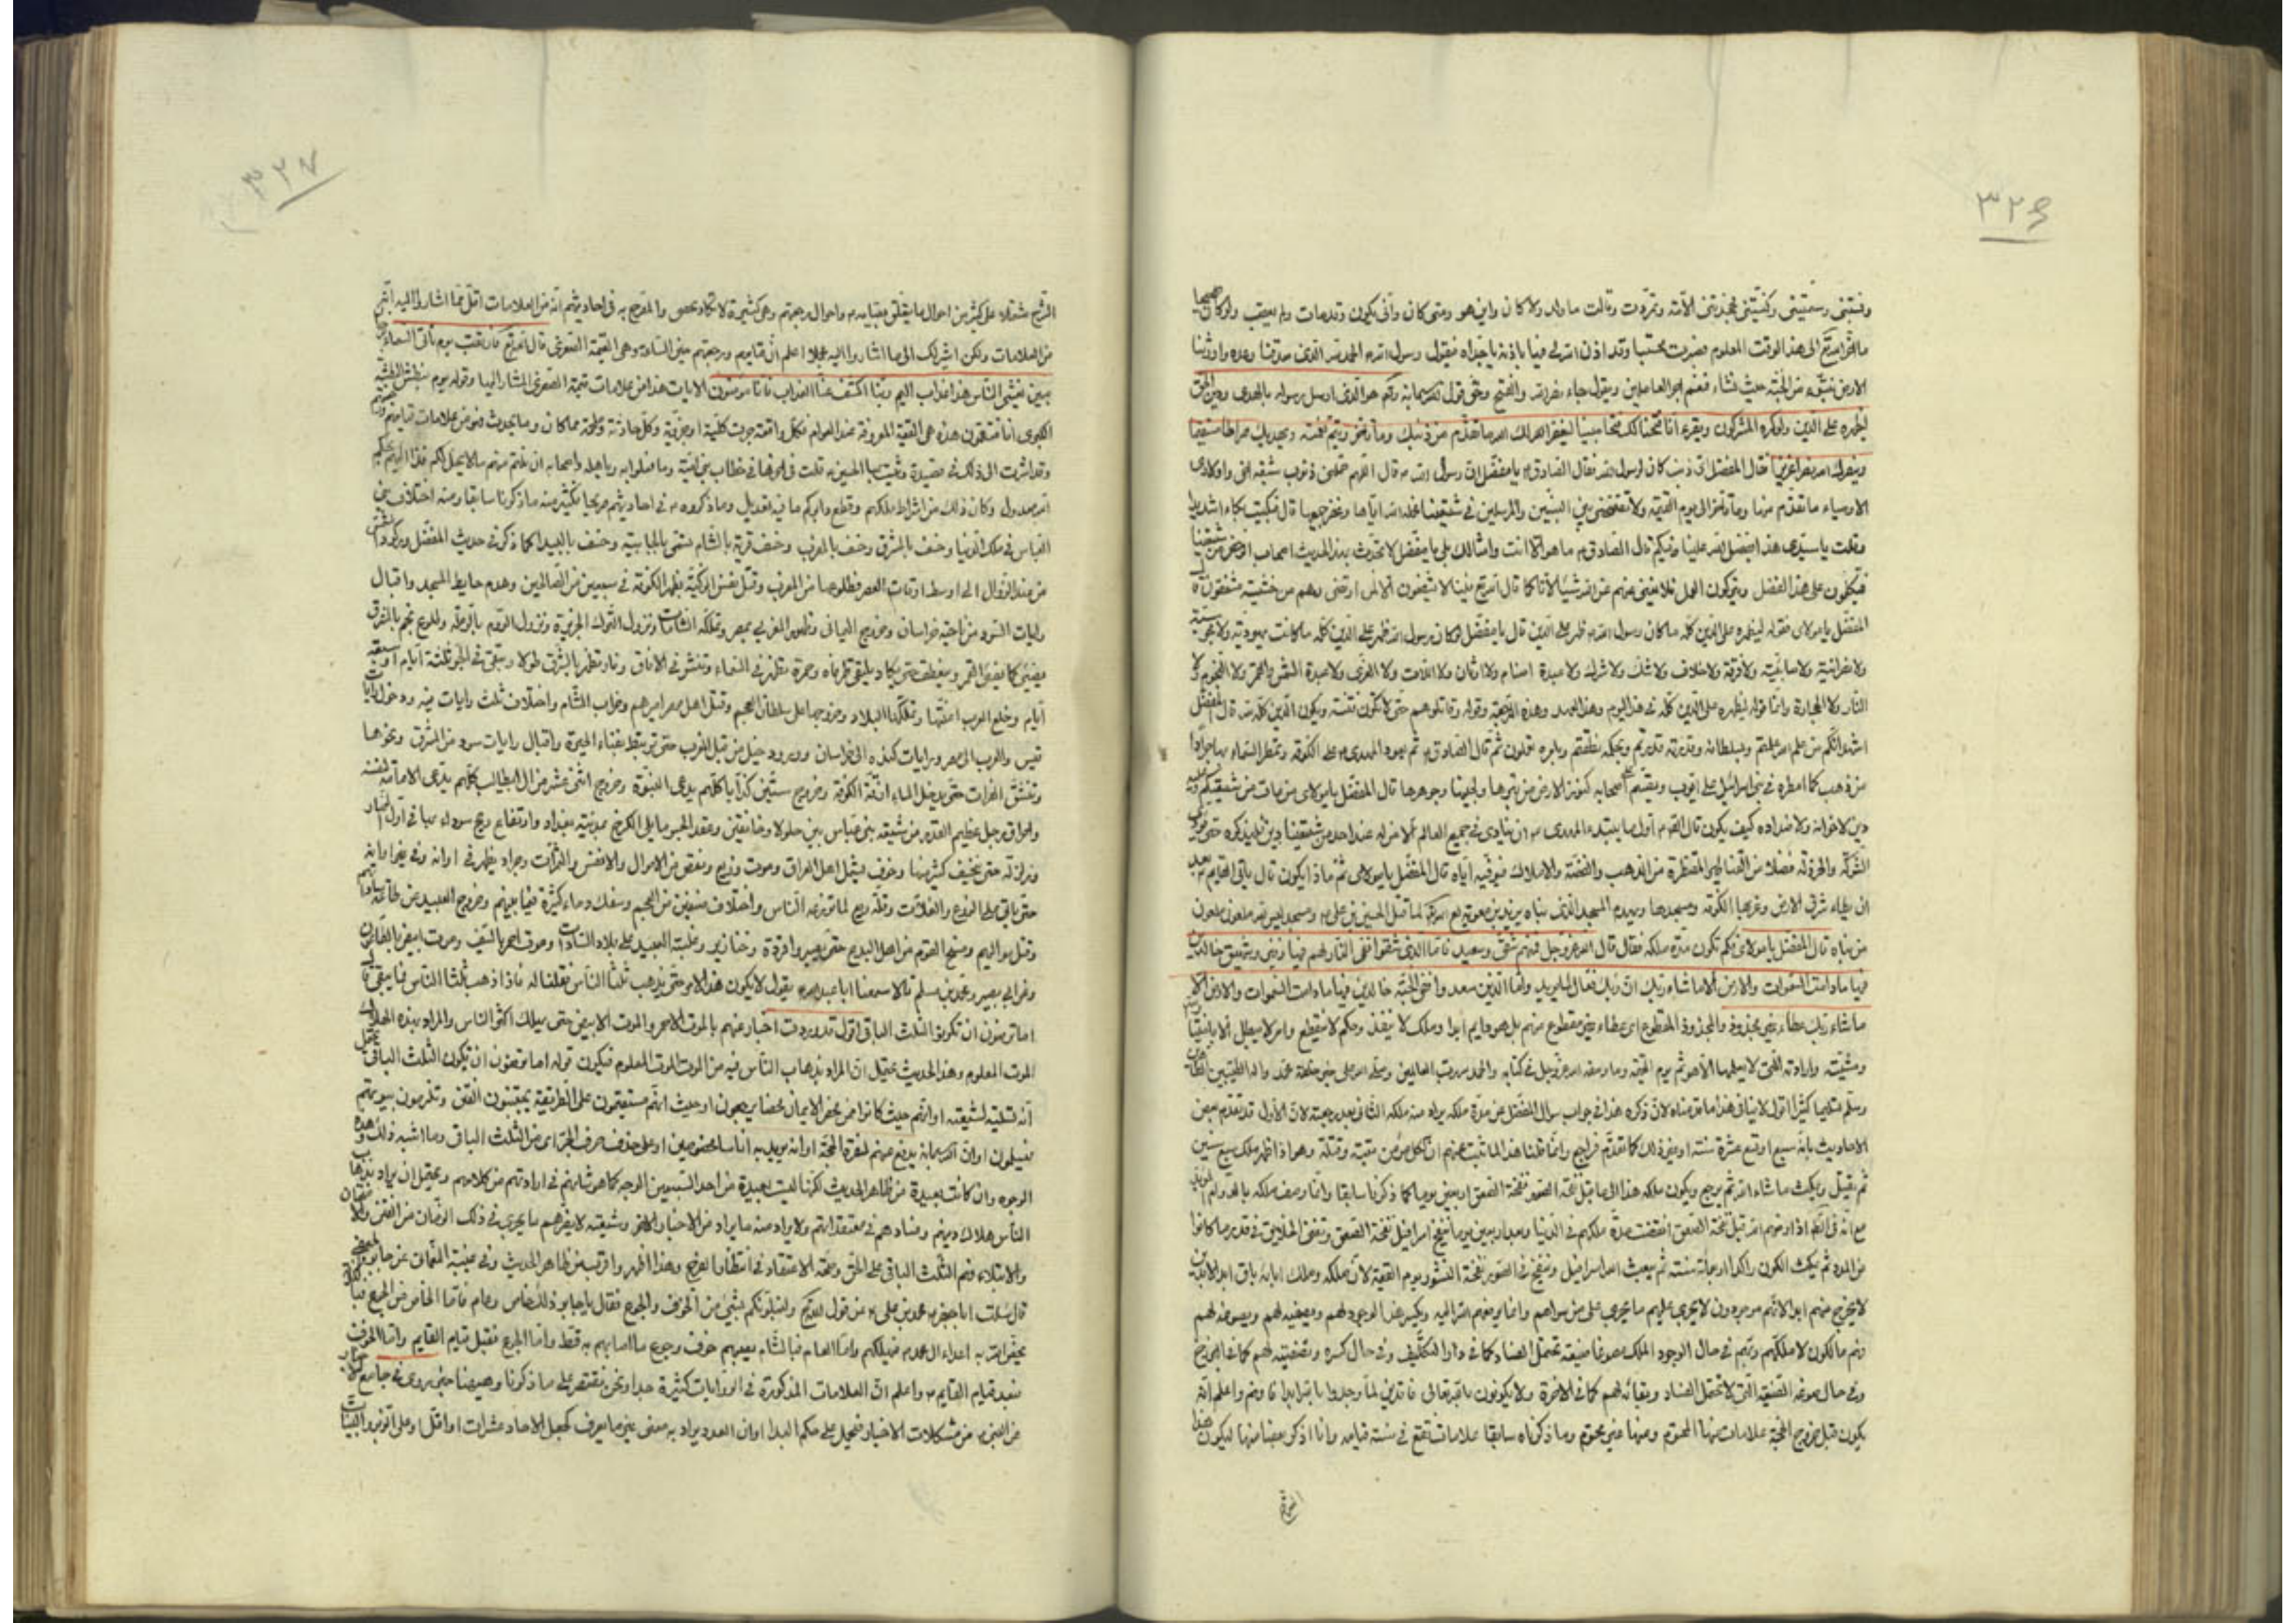 ٣٢٦
ونسبتنى وسميتنى وكنيتنى فجحدتنى الأمة وتمردت وقالت ما ولد ولا كان واين هو ومتى كان وأنى يكون وقد مات ولم يعقب ولو كان صحيحا
ما أخره الله تع الى هذا الوقت المعلوم فصبرت محتسبا وقد اذن الله لى فيها باذنه يا جداه فيقول رسول الله الحمد لله الذى صدقنا وعده واورثنا
الارض نتبوء من الجنة حيث نشاء فنعم اجر العاملين ويقول جاء نصر الله والفتح وحق قول الله سبحانه وتع هو الذى ارسل رسوله بالهدى ودين الحق
ليظهره على الدين ولو كره المشركون ويقرء انا فتحنا لك فتحا مبينا ليغفر لك الله ما تقدم من ذنبك وما تأخر ويتم نعمته ويهديك صراطا مستقيما
وينصرك الله نصرا عزيزا فقال المفضل اى ذنب كان لرسول الله فقال الصادق يا مفضل ان رسول الله قال اللهم حملنى ذنوب شيعة اخى واولادى
الاوصياء ما تقدم منها وما تأخر الى يوم القيمة ولا تفضحنى بين النبيين والمرسلين فى شيعتنا فحمله الله اياها وغفر جميعها قال فبكيت بكاء شديدا
وقلت يا سيدى هذا بفضل الله علينا وفيكم قال الصادق ما هو الا انت وامثالك بلى يا مفضل لا تحدث بهذا الحديث اصحاب الرخص من شيعتنا
فيتكلون على هذا الفضل ويتركون العمل فلا نغنى عنهم من الله شيئا لأنا كما قال الله تع فينا لا يشفعون الا لمن ارتضى وهم من خشيته مشفقون قال
المفضل يا مولاى فقوله ليظهره على الدين كله ما كان رسول الله ظهر على الدين قال يا مفضل لو كان رسول الله ظهر على الدين كله ما كانت يهودية ولا مجوسية
ولا نصرانية ولا صابئية ولا فرقة ولا خلاف ولا شك ولا شرك ولا عبدة اصنام ولا اوثان ولا اللات ولا العزى ولا عبدة الشمس والقمر ولا النجوم ولا
النار ولا الحجارة وانما قوله ليظهره على الدين كله فى هذا اليوم وهذا المهدى وهذه الرجعة وقوله وقاتلوهم حتى لا تكون فتنة ويكون الدين كله لله قال المفضل
اشهد انكم من علم الله علمتم وبسلطانه وقدرته قدرتم وبحكمه نطقتم وبامره تعملون ثم قال الصادق ثم يعود المهدى الى الكوفة وتمطر السماء بها جرادا
من ذهب كما امطره فى بنى اسرائيل على ايوب ويقسم على اصحابه كنوز الارض من تبرها ولجينها وجوهرها قال المفضل يا مولاى من مات من شيعتكم وعليه
دين لاخوانه ولا ضداده كيف يكون قال الصادق اول ما يبتدء المهدى ان ينادى فى جميع العالم الا من له عند احد من شيعتنا دين فليذكره حتى يرد
الثومة والخردلة فضلا من القناطير المقنطرة من الذهب والفضة والاملاك فيوفيه اياه قال المفضل يا مولاى ثم ماذا يكون قال يأتى القائم بعد
ان يطاء شرق الارض وغربها الكوفة ومسجدها ويهدم المسجد الذى بناه يزيد بن معوية لعنه الله لما قتل الحسين بن على ومسجد ليس لله ملعون ملعون
من بناه قال المفضل يا مولاى فكم تكون مدة ملكه فقال قال الله عز وجل فمنهم شقى وسعيد فاما الذين شقوا ففى النار لهم فيها زفير وشهيق خالدين
فيها ما دامت السموات والارض الا ما شاء ربك ان ربك فعال لما يريد واما الذين سعدوا ففى الجنة خالدين فيها ما دامت السموات والارض الا
ما شاء ربك عطاء غير مجذوذ والمجذوذ المقطوع اى عطاء غير مقطوع عنهم بل هو دائم ابدا وملك لا ينفد وحكم لا ينقطع وامر لا يبطل الا باختيار الله
ومشيته وارادته التى لا يعلمها الا هو ثم يوم القيمة وما وصفه الله عز وجل فى كتابه والحمد لله رب العالمين وصلى الله على خير خلقه محمد واله الطيبين الطاهرين
وسلم تسليما كثيرا اقول لا ينافى هذا ما قدمناه لأن ذكره هذا فى جواب سؤال المفضل عن مدة ملكه يراد منه ملكه الثانى بعد رجعته لان الاول قد تقدم بعض
الاحاديث بانه سبع او تسع عشرة سنة او غير ذلك كما تقدم فراجع وانما قلنا هذا لما ثبت عنهم ان لكل مؤمن ميتة وقتلة وهو اذا ظهر ملك سبع سنين
ثم يقتل ويمكث ما شاء الله ثم يرجع ويكون ملكه هذا الى ما قبل نفخة الصور نفخة الصعق اربعين يوما كما ذكرنا سابقا وانما وصف ملكه بالدوام الابدى
مع انه اذا رفعهم الله قبل نفخة الصعق انقضت مدة ملكهم فى الدنيا وبعد اربعين يوما ينفخ اسرافيل نفخة الصعق وتفنى الخلايق فى قدر ما كانوا
من المدة ثم يمكث الكون راكدا اربعمائة سنة ثم يبعث الله اسرافيل وينفخ فى الصور نفخة النشور يوم القيمة لان ملكه وملك ابائه باق ابد الابدين
لا يخرج منهم ابدا لانهم
وهم مالكون لاملاكهم وهم فى حال الوجود الملك
وفى حال صوغه الصيغة التى لا تحتمل الفساد وبقائه لهم كما فى الاخرة ولا يكونون
يكون قبل خروج الحجة علامات منها المحتوم ومنها غير محتوم وما ذكرناه سابقا علامات تقع فى سنة قيامه وانا اذكر بعضا منها ليكون هذا
الشرح
٣٢٧
الشرح مشتملا على كثير من احوال ما يتعلق بقيامه واحوال رجعتهم وهى كثيرة لا تكاد تحصى والمصرح به فى احاديثهم انه من العلامات اقل مما اشاروا اليه انه
من العلامات ولكن اشير لك الى ما اشاروا اليه مجملا اعلم ان قيامهم ورجعتهم هى القيمة الصغرى قال الله تع فارتقب يوم تأتى السماء بدخان
مبين يغشى الناس هذا عذاب اليم ربنا اكشف عنا العذاب انا مؤمنون الايات هذا من علامات قيمة الصغرى المشار اليها وقوله يوم نبطش البطشة
الكبرى انا منتقمون هذه هى القيمة المعروفة عند العوام فكل واقعة جرت كلية او جزئية وكل حادثة وظلمة مما كان وما يحدث فهو من علامات قيامهم
وقد اشرت الى ذلك فى قصيدة رثيت بها الحسين قلت فى اخرها فى خطاب بنى امية وما فعلوا به وباهله واصحابه
وكان ذلك من اشراط ملكهم وقطع دابركم وما ذكروه فى احاديثهم صريحا كثير منه ما ذكرنا سابقا ومنه اختلاف بنى
العباس فى ملك الدنيا وخسف بالمشرق وخسف بالمغرب وخسف قرية بالشام تسمى بالجابية وخسف بالبيدا كما ذكر فى حديث المفضل وركود الشمس
من عند الزوال الى اوسط اوقات العصر وطلوعها من المغرب وقتل نفس الزكية بظهر الكوفة فى سبعين من الصالحين وهدم حايط المسجد واقبال
رايات السود من ناحية خراسان وخروج اليمانى وظهور المغربى بمصر وتملكه الشامات ونزول الترك الجزيرة ونزول الروم بالرملة وطلوع نجم بالمشرق
يضئ كما يضئ القمر وينعطف حتى يكاد يلتقى طرفاه وحمرة تظهر فى السماء وتنشر فى الافاق ونار تظهر بالمشرق طولا وتبقى فى الجو ثلثة ايام او سبعة
ايام وخلع العرب اعنتها وتملكها البلاد وخروجها على سلطان العجم وقتل اهل مصر اميرهم وخراب الشام واختلاف ثلث رايات فيه ودخول رايات
قيس والعرب الى مصر ورايات كنده الى خراسان وورود خيل من قبل المغرب حتى تربط بفناء الحيرة واقبال رايات سود من المشرق ونحوها
وتنشق الفرات حتى يدخل الماء ازقة الكوفة وخروج ستين كذابا كلهم يدعى النبوة وخروج اثنى عشر من ال ابيطالب كلهم يدعى الامامة لنفسه
واحراق رجل عظيم القدر من شيعة بنى عباس بين جلولا وخانقين وعقد الجسر مما يلى الكرخ بمدينة بغداد وارتفاع ريح سوداء بها فى اول النهار
وزلزلة حتى ينخسف كثير منها وخوف يشمل اهل العراق وموت ذريع ونقص من الاموال والانفس والثمرات وجراد يظهر فى اوانه وفى غير اوانه
حتى ياتى على الزرع والغلات وقلة ريع لما تزرعه الناس واختلاف صنفين من العجم وسفك دماء كثيرة فيما بينهم وخروج العبيد عن طاعة ساداتهم
وقتل مواليهم ومسخ القوم من اهل البدع حتى يصيروا قردة وخنازير وغلبة العبيد على بلاد السادات وموت احمر بالسيف وموت ابيض بالطاعون
وعن ابى بصير ومحمد بن مسلم قالا سمعنا ابا عبد الله يقول لا يكون هذا الامر حتى يذهب ثلثا الناس فقلنا له فاذا ذهب ثلثا الناس فما يبقى قال
اما ترضون ان تكونوا الثلث الباقى اقول قد وردت اخبار عنهم بالموت الاحمر والموت الابيض حتى يهلك اكثر الناس والمراد بهذه الهلاك
الموت المعلوم وهذا الحديث يحتمل ان المراد بذهاب الناس فيه من الموت الموت المعلوم فيكون قوله اما ترضون ان تكون الثلث الباقى يحتمل
انه تسلية لشيعته او انهم حيث كانوا ممن محض الايمان محضا يرجعون او حيث انهم مستقيمون على الطريقة يجتنبون الفتن وتلزمون بيوتهم
فيسلمون او ان الله سبحانه يدفع عنهم لنصرة الحجة او انه يريد به اناسا مخصوصين او على حذف حرف الجر اى من الثلث الباقى وما اشبه ذلك وهذه
الوجوه وان كانت بعيدة من ظاهر الحديث لكنها ليست بعيدة من احد السبعين الوجه كما هو شانهم فى ارادتهم من كلامهم ويحتمل ان يراد بذهاب
الناس هلاك دينهم وفسادهم فى معتقداتهم
والابتلاء وهم الثلث الباقى على الحق وصحة الاعتقاد فى انتظار الفرج وهذا اظهر واقرب من ظاهر الحديث وفى غيبة النعمانى عن جابر الجعفى
قال سئلت ابا جعفر محمد بن على عن قول الله تع ولنبلونكم بشئ من الخوف والجوع فقال يا جابر ذلك خاص وعام فاما الخاص من الجوع فبالكوفة
يخص الله به اعداء ال محمد فيهلكهم واما العام فبالشام يصيبهم خوف وجوع ما اصابهم به قط واما الجوع فقبل قيام القايم واما الخوف
فبعد قيام القايم واعلم ان العلامات المذكورة فى الروايات كثيرة جدا ونحن نقتصر على ما ذكرنا
من مشكلات الاخبار فتحمل على حكم البدا او ان العدد يراد به معنى غير ما يعرف كجعل الاحاد عشرات او اقل